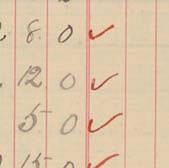 8 0 ✓
12 0 ✓
5 0 ✓
15 0 ✓